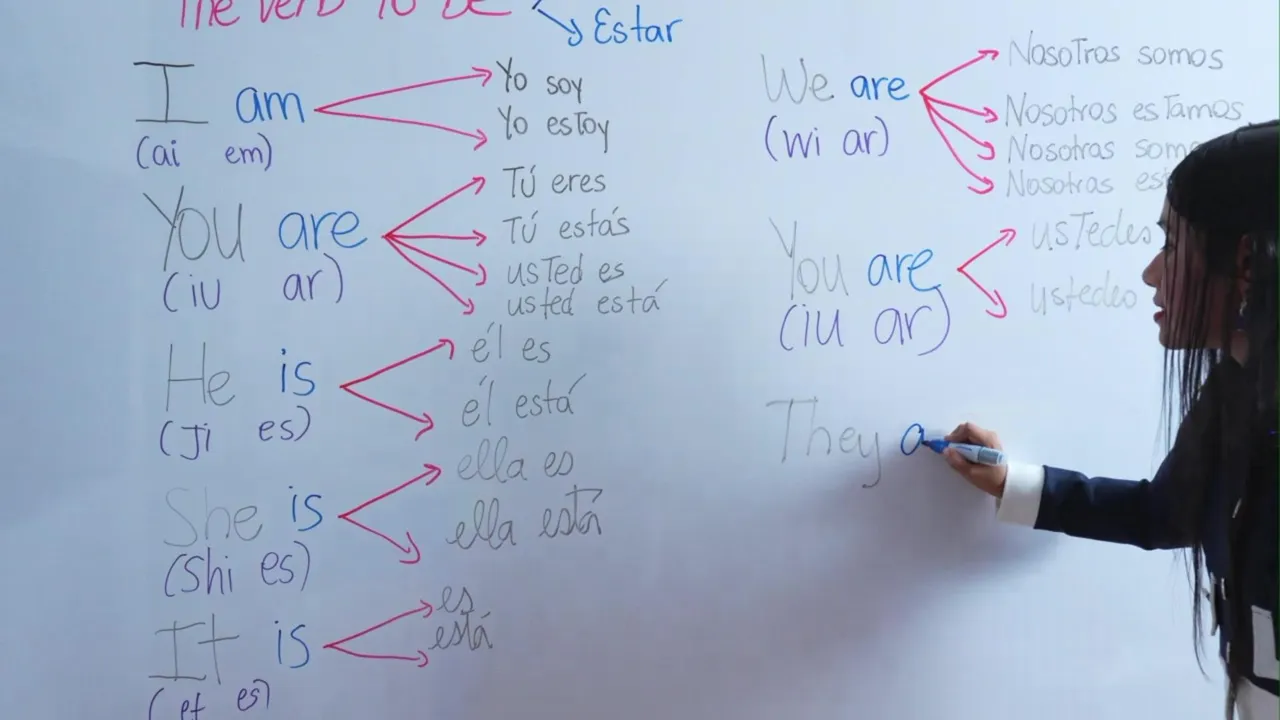 The verb TO BE
Estar
I am
(ai em)
Yo soy
Yo estoy
You are
(iu ar)
Tú eres
Tú estás
usted es
usted está
He is
(Ji es)
él es
él está
She is
(Shi es)
ella es
ella está
It is
es)
es
está
We are
(wi ar)
Nosotros somos
Nosotros estamos
Nosotras som
Nosotras est
You are
(iu ar)
ustedes
ustedes
They a